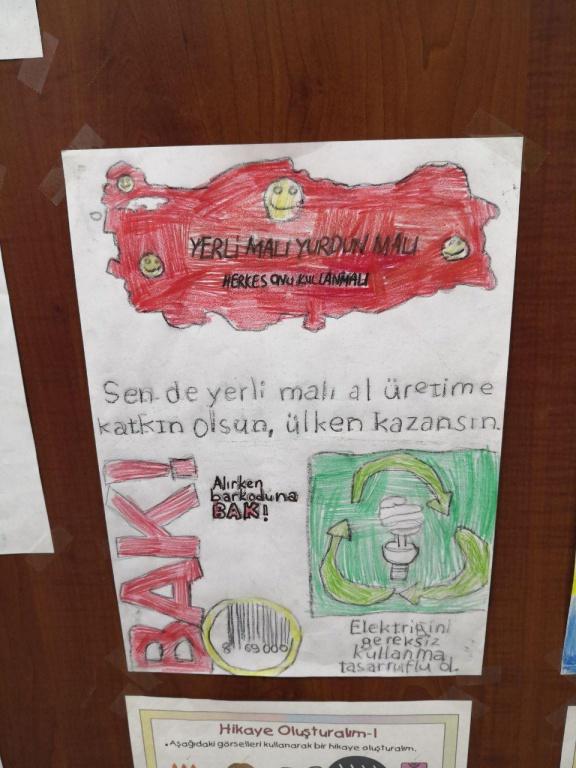 YERLİ MALI YURDUN MALI
HERKES ONU KULLANMALI
Sen de yerli malı al üretime
katkın olsun, ülken kazansın.
BAK!
Alırken
barkoduna
BAK!
869000
Elektriğini
gereksiz
kullanma
tasarruflu ol.
Hikaye Oluşturalım-1
• Aşağıdaki görselleri kullanarak bir hikaye oluşturalım.